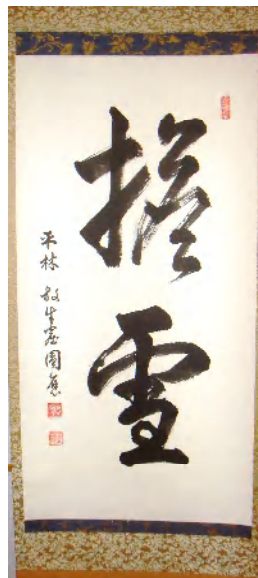 擔雪
平林 放牛窟圓應